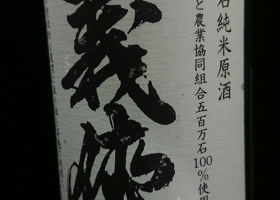 石純米原酒
と農業協同組合五百万石100%使用
義侠